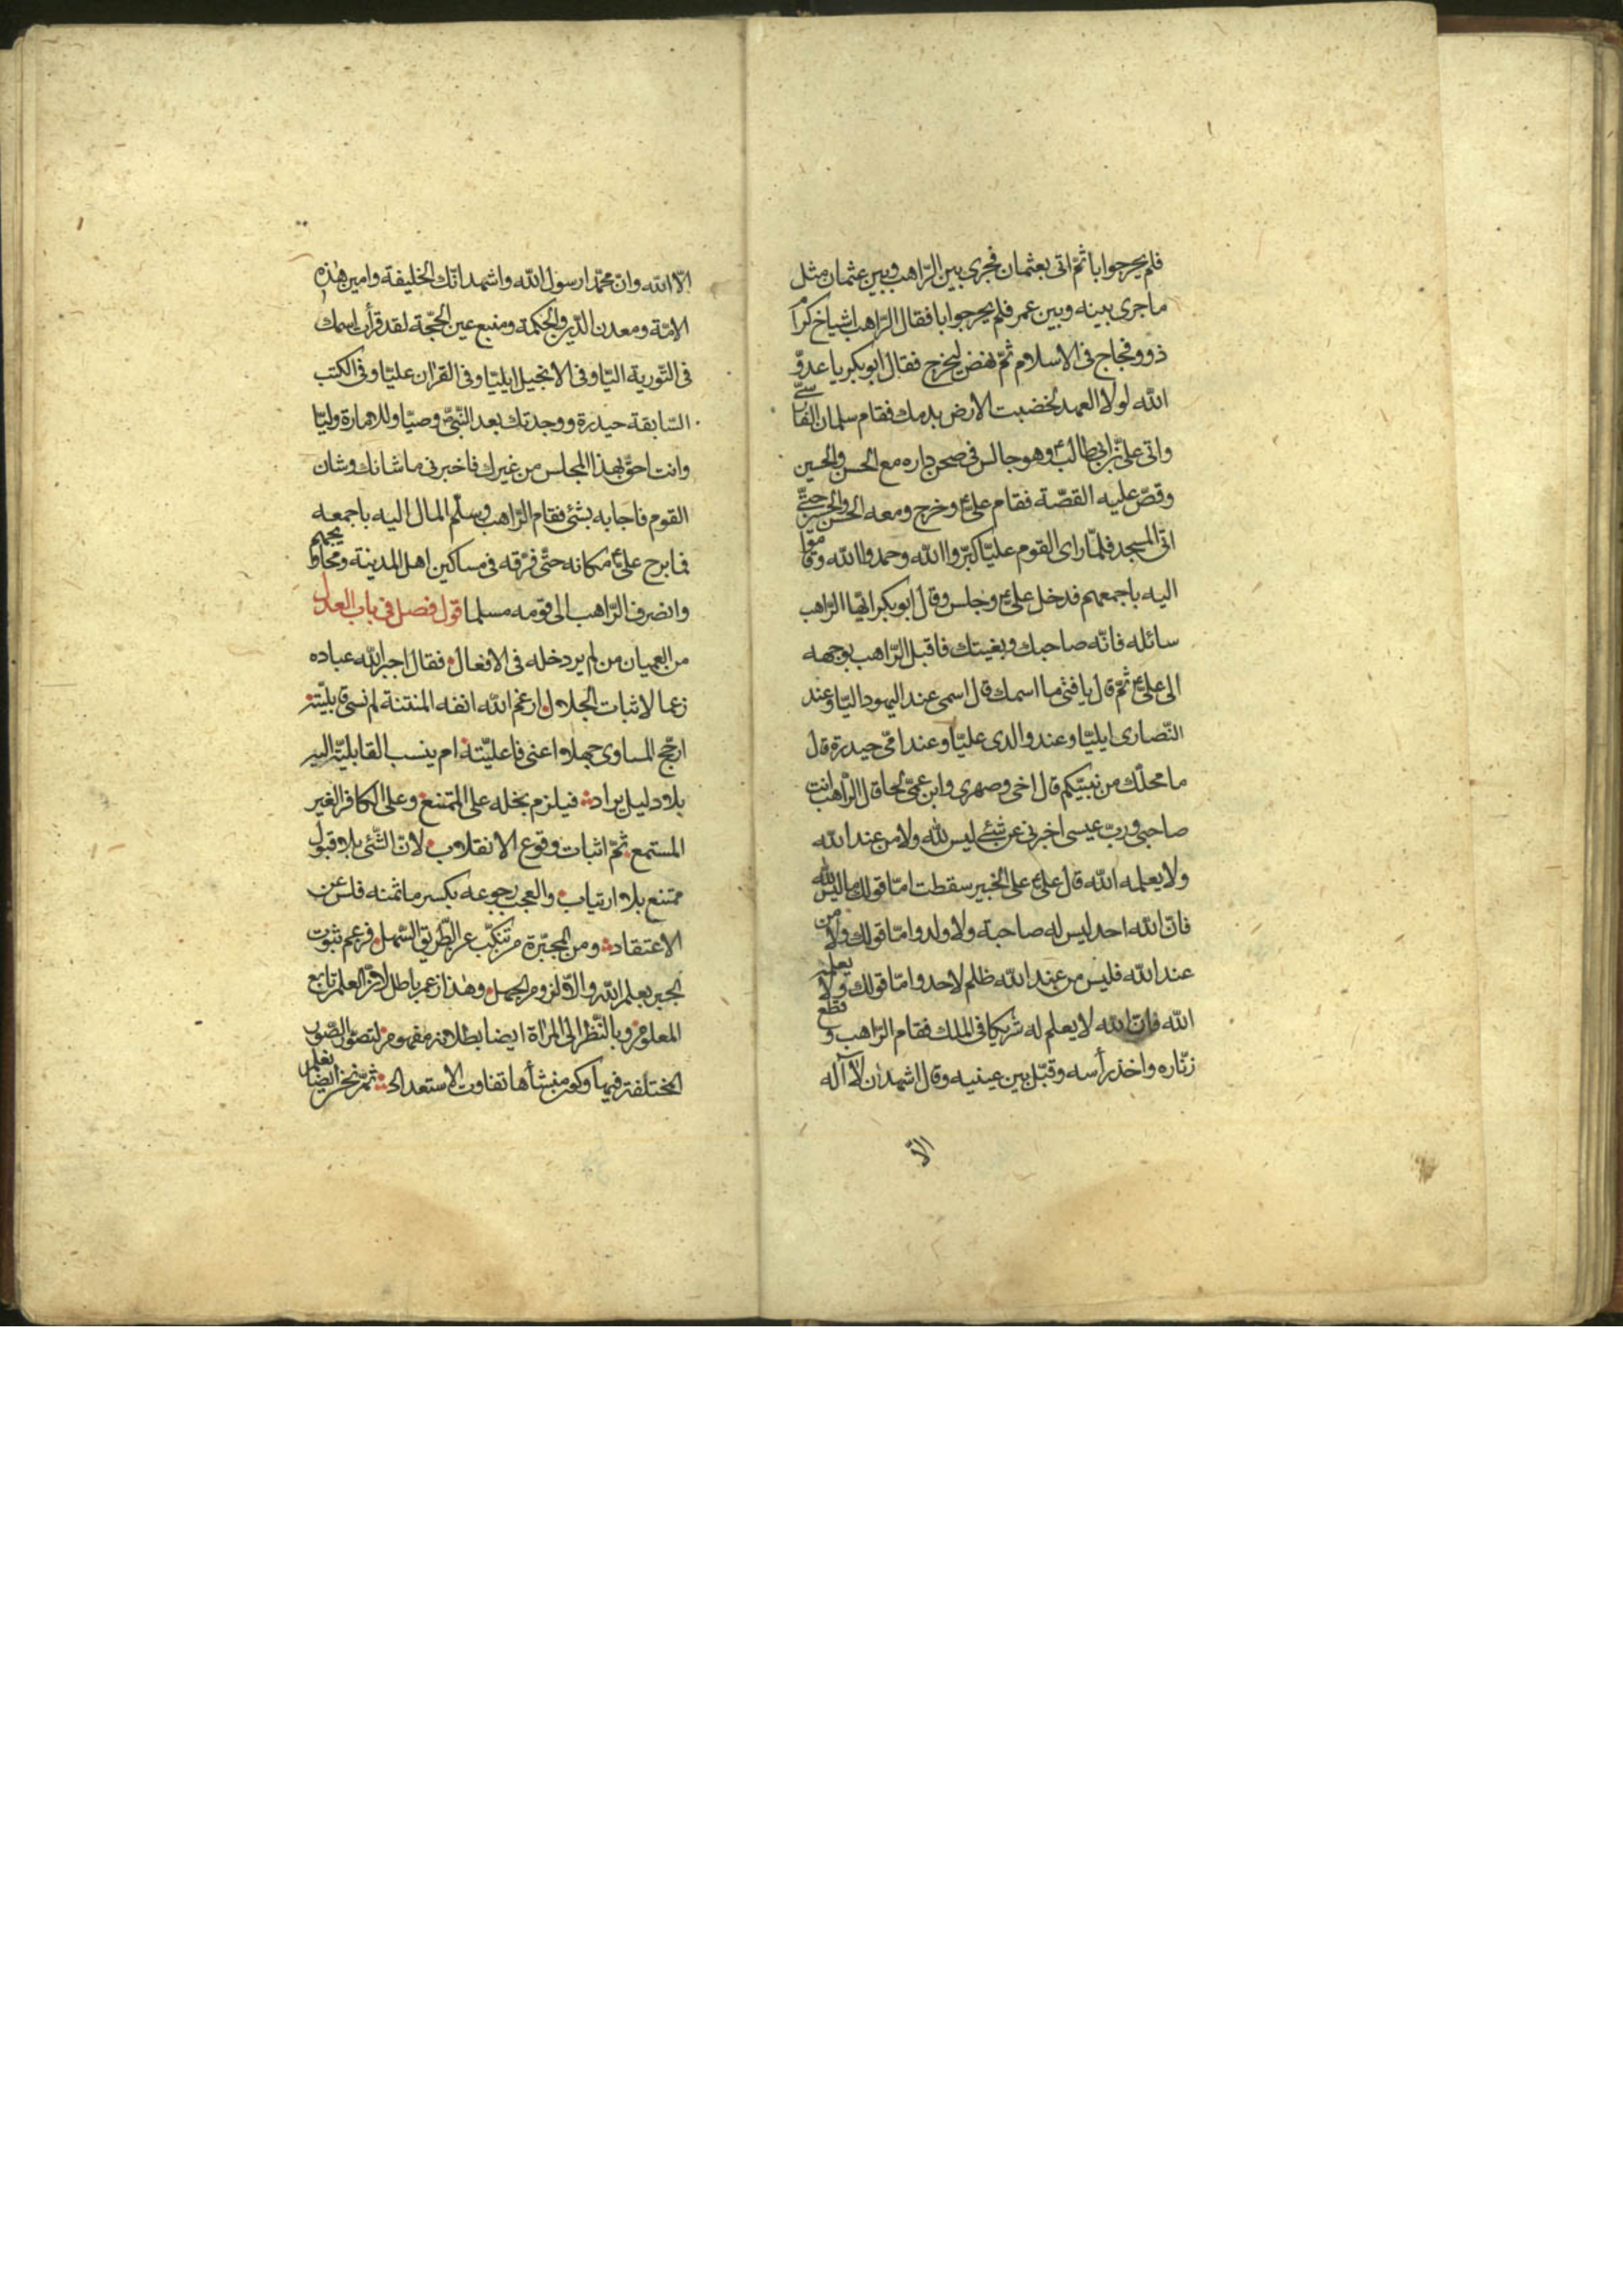 فلم يحر جوابا ثمّ اتى بعثمان فجرى بين الرّاهب وبين عثمان مثل
ما جرى بينه وبين عمر فلم يحر جوابا فقال الرّاهب اشياخ كرام
ذوو فجاج فى الاسلام ثمّ نهض ليخرج فقال ابو بكر يا عدوّ
اللّه لولا العهد لخضبت الارض بدمك فقام سلمان الفارسىّ
واتى علىّ بن ابى طالب ع وهو جالس فى صحن داره مع الحسن والحسين
وقصّ عليه القصّة فقام علىّ ع وخرج ومعه الحسن والحسين حتّى
اتى المسجد فلمّا راى القوم عليّا كبّروا اللّه وحمدوا اللّه وقاموا
اليه باجمعهم فدخل علىّ ع وجلس وقال ابو بكر ايّها الرّاهب
سائله فانّه صاحبك وبغيتك فاقبل الرّاهب بوجهه
الى علىّ ع ثمّ قال يا فتى ما اسمك قال اسمى عند اليهود اليّا وعند
النّصارى ايليّا وعند والدى عليّا وعند امّى حيدرة قال
ما محلّك من نبيّكم قال اخى وصهرى وابن عمّى لحا قال الرّاهب انت
صاحبى وربّ عيسى اخبرنى عن شئ ليس للّه ولا من عند اللّه
ولا يعلمه اللّه قال علىّ ع على الخبير سقطت امّا قولك ما ليس للّه
فانّ اللّه احد ليس له صاحبة ولا ولد وامّا قولك ولا من
عند اللّه فليس من عند اللّه ظلم لاحد وامّا قولك ولا يعلمه
اللّه فانّ اللّه لا يعلم له شريكا فى الملك فقام الرّاهب وقطع
زنّاره واخذ رأسه وقبّل بين عينيه وقال اشهد ان لا اله
الّا
الّا اللّه وانّ محمّدا رسول اللّه واشهد انّك الخليفة وامين هذه
الامّة ومعدن الدّين والحكمة ومنبع عين الحجّة لقد قرأت اسمك
فى التّورية اليّا وفى الانجيل ايليّا وفى القران عليّا وفى الكتب
السّابقة حيدرة ووجدتك بعد النّبىّ وصيّا وللامارة وليّا
وانت احقّ بهذا المجلس من غيرك فاخبرنى ما شانك وشان
القوم فاجابه بشئ فقام الرّاهب وسلّم المال اليه باجمعه
فما برح علىّ ع مكانه حتّى فرّقه فى مساكين اهل المدينة ومحاويجهم
وانصرف الرّاهب الى قومه مسلما قول فصل فى باب العدل
من العميان من لم ير دخله فى الافعال فقال اجبر اللّه عباده
زعما لاثبات الجلال ارغم اللّه انفه المنتنة لم نسى قابليّته
ارجّح المساوى جهلا اعنى فاعليّته ام ينسب القابليّة اليه
بلا دليل يراد فيلزم بخله على الممتنع وعلى الكافر الغير
المستمع ثمّ اثبات وقوع الانقلاب لانّ الشّئ بلا قبول
ممتنع بلا ارتياب والعجب رجوعه بكسر ما ثمنه فلس عن
الاعتقاد ومن المجبّرة من تنكّب عن الطّريق السّهل فزعم ثبوت
الجبر بعلم اللّه والّا لزوم الجهل وهذا زعم باطل لانّ العلم تابع
المعلوم وبالنّظر الى المرآة ايضا بطلانه مفهوم لتصوّر الصّور
المختلفة فيها وكون منشأها تفاوت الاستعداد ثمّ نحن ايضا نعلم